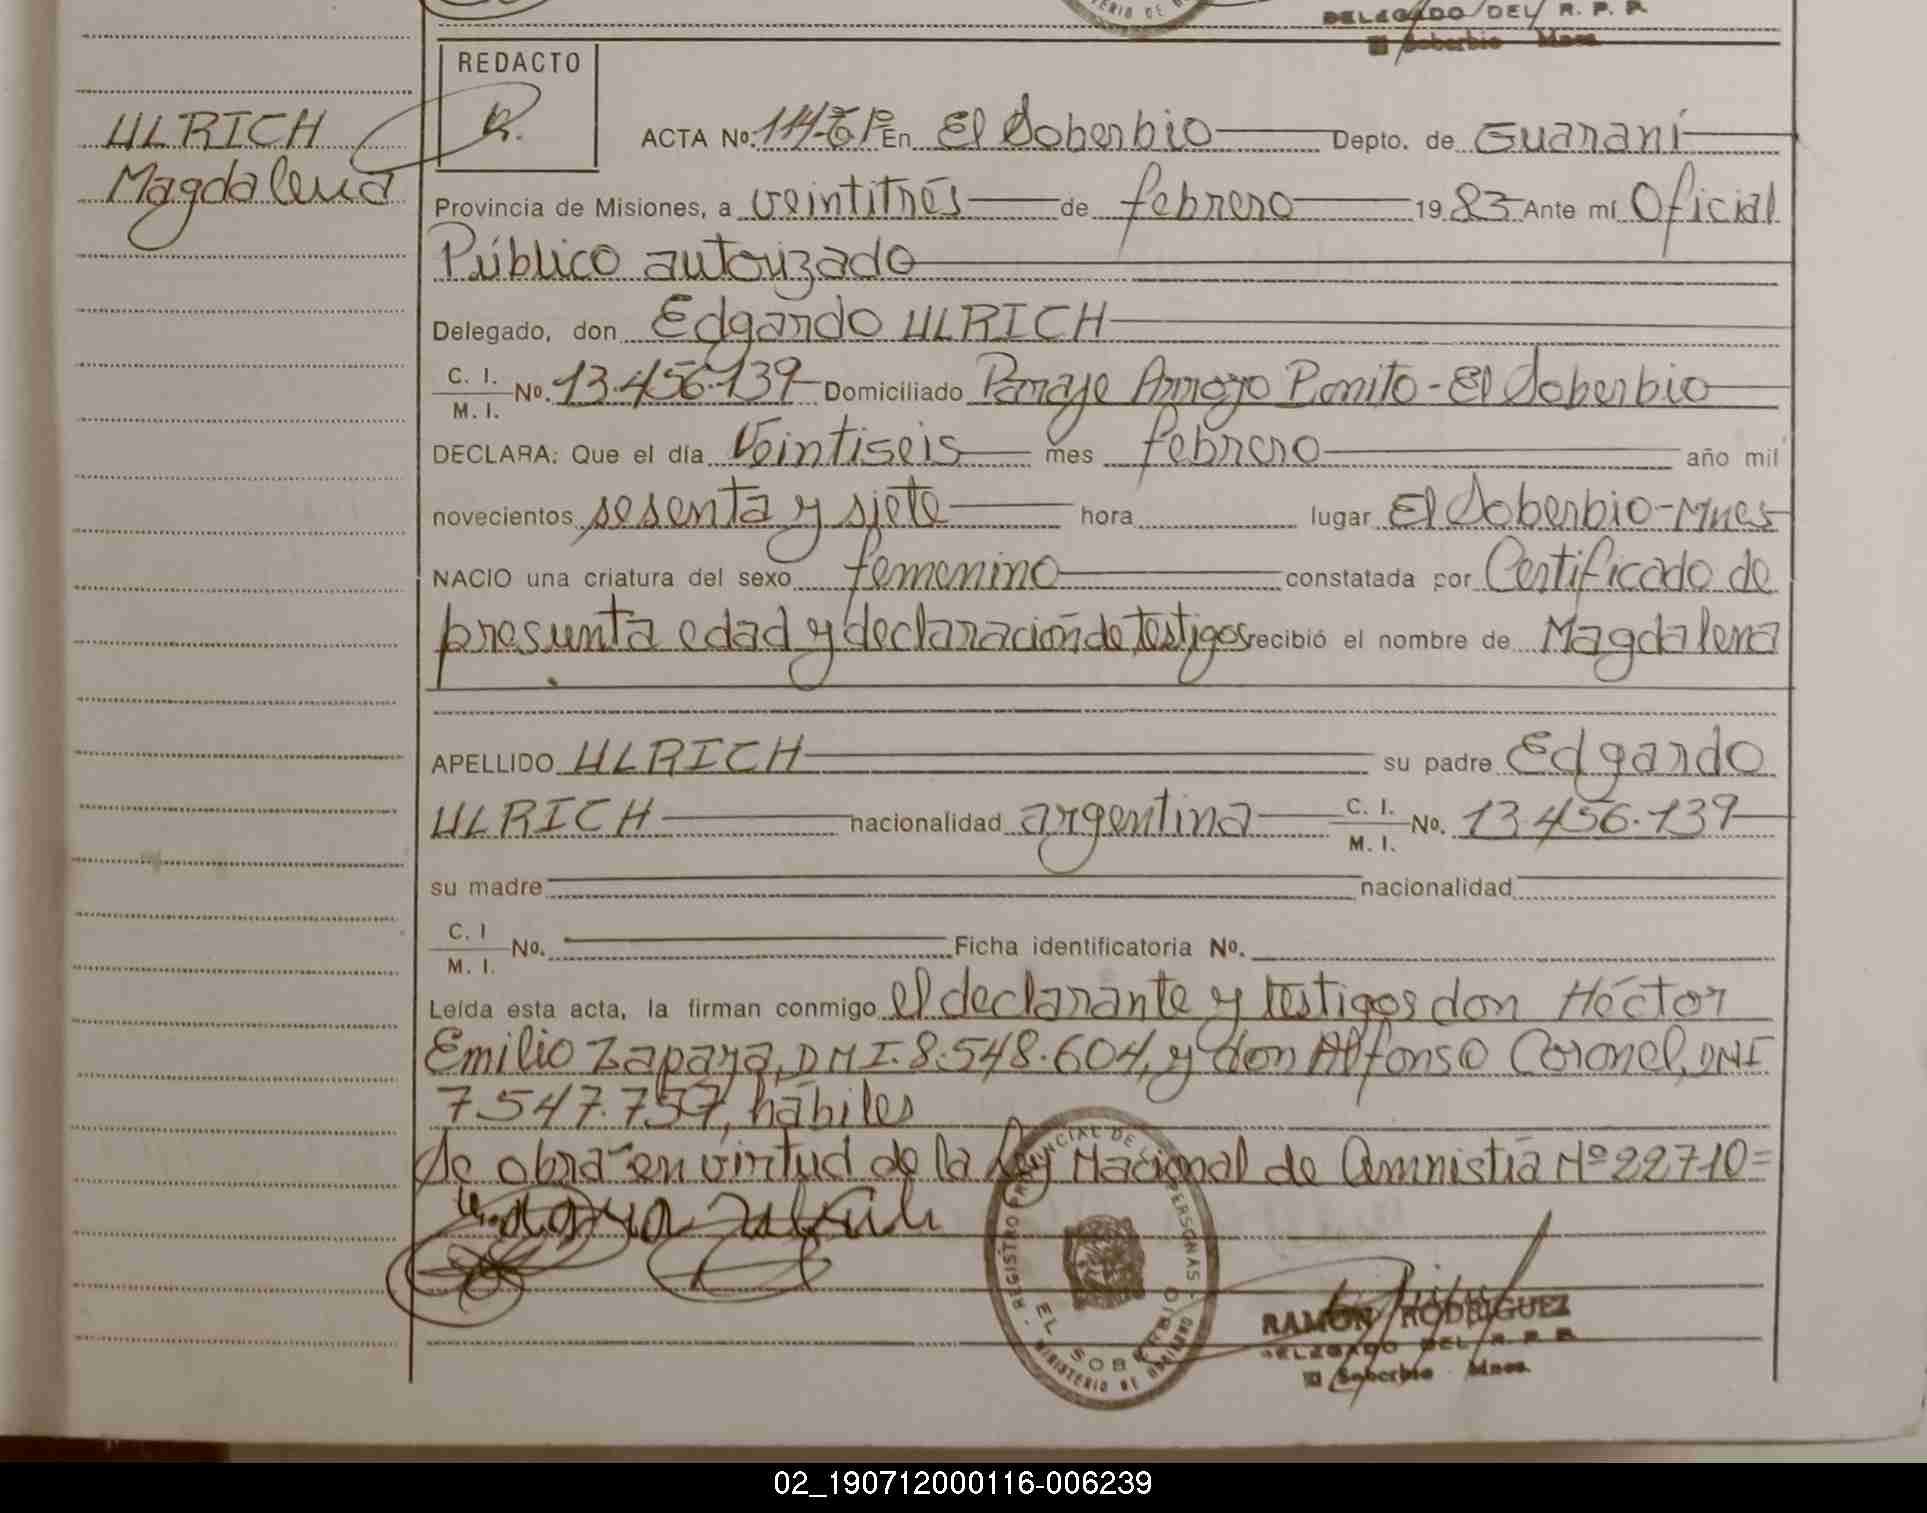 DELEGADO DEL R. P. P.
El Soberbio Mnes.
REDACTO
ULRICH
Magdalena
ACTA No. En El Soberbio Depto. de Guaraní
Provincia de Misiones, a veintitrés de febrero 1983 Ante mí Oficial
Público autorizado
Delegado, don Edgardo ULRICH
C. I.
M. I. No. 13.456.139 Domiciliado Paraje Arroyo Bonito - El Soberbio
DECLARA: Que el día Veintiseis mes febrero año mil
novecientos sesenta y siete hora lugar El Soberbio-Mnes
NACIO una criatura del sexo femenino constatada por Certificado de
presunta edad y declaración de testigos recibió el nombre de Magdalena
APELLIDO ULRICH su padre Edgardo
ULRICH nacionalidad argentina C. I. M. I. No. 13.456.139
su madre nacionalidad
C. I
M. I. No. Ficha identificatoria No.
Leída esta acta, la firman conmigo el declarante y testigos don Héctor
Emilio Zapaya, DNI. 8.548.604, y don Alfonso Coronel, DNI
7.547.757, hábiles
Se obra en virtud de la Ley Nacional de Amnistía Nº 22710=
REGISTRO PROVINCIAL DE LAS PERSONAS
EL SOBERBIO
MINISTERIO DE GOBIERNO
RAMON RODRIGUEZ
DELEGADO DEL R. P. P.
El Soberbio Mnes.
02_190712000116-006239